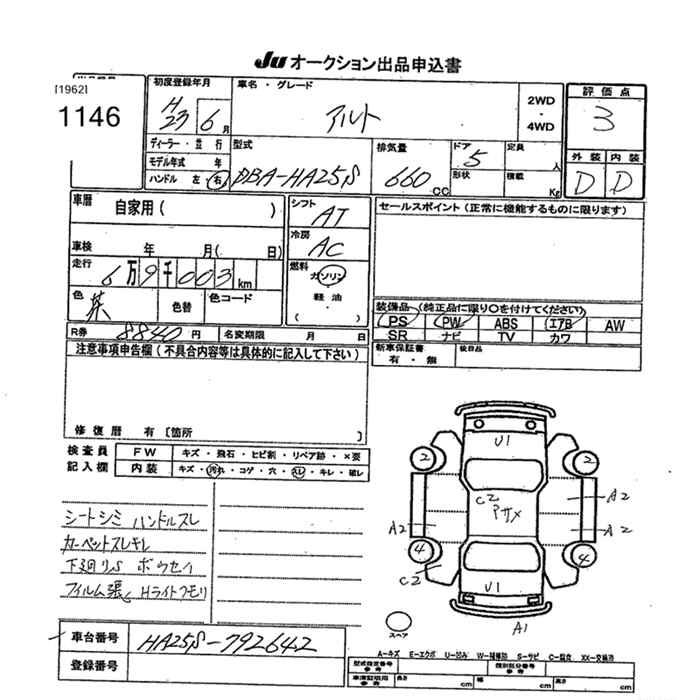 JU オークション出品申込書
[1962]
1146
初度登録年月
H 23 6 月
車名・グレード
アルト
2WD
・
4WD
評価点
3
外装 内装
D D
ディーラー・並行
モデル年式 年
ハンドル 左・右
型式
DBA-HA25S
排気量
660 CC
ドア 5
形状
定員 人
積載 Kg
車歴 自家用( )
車検 年 月( 日)
走行
6万9千003km
色
色替
色コード
シフト
AT
冷房
AC
燃料
ガソリン
・
軽油
・
( )
セールスポイント(正常に機能するものに限ります)
装備品(純正品に限り○を付けてください)
PS PW ABS エアB AW
SR ナビ TV カワ
新車保証書
有・無
後日品
R券 8840 円
名変期限 月 日
注意事項申告欄(不具合内容等は具体的に記入して下さい)
修復歴 有[箇所 ]
検査員
記入欄
FW キズ・飛石・ヒビ割・リペア跡・×要
内装 キズ・汚れ・コゲ・穴・スレ・キレ・破レ
シートシミ ハンドルスレ
カーペットスレキレ
下廻りS ボウセイ
フィルム張 Hライトクモリ
U1
2 2
C2
アサメ
A2
A2 A2
4 4
C2
U1
A1
スペア
車台番号 HA25S-792642
登録番号
A-キズ E-エクボ U-凹み W-補修跡 S-サビ C-腐食 XX-交換済
型式指定番号
参考
類別区分番号
参考
車庫証明用
参考
長さ cm
幅 cm
高さ cm